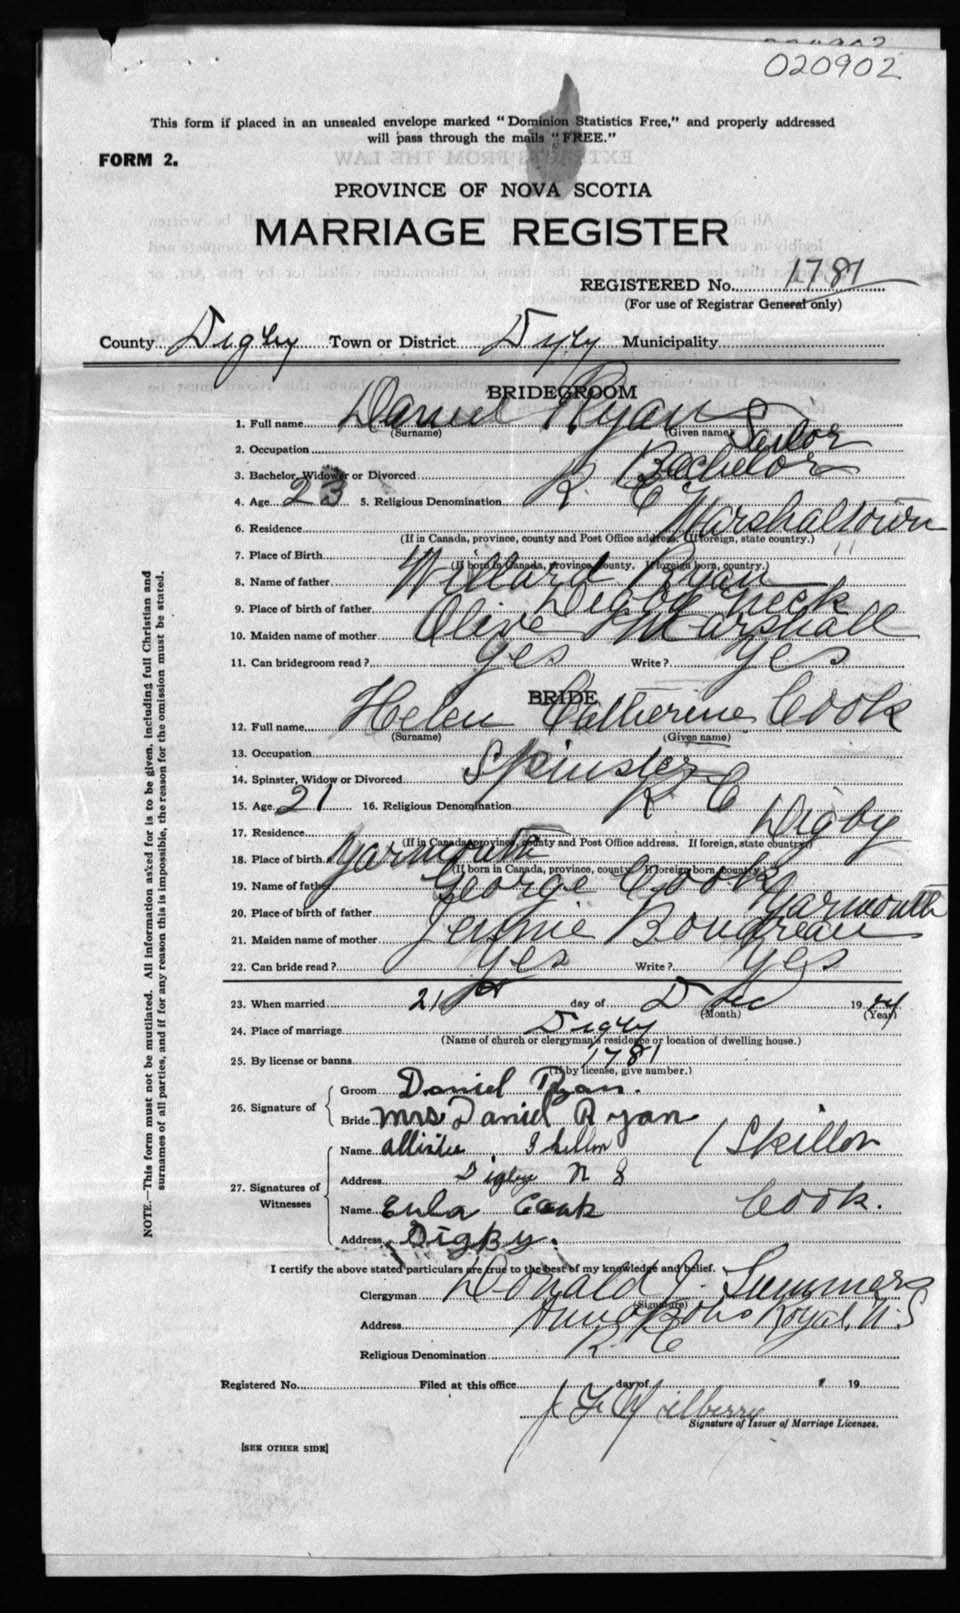 020902
This form if placed in an unsealed envelope marked "Dominion Statistics Free," and properly addressed
will pass through the mails "FREE."
FORM 2.
PROVINCE OF NOVA SCOTIA
MARRIAGE REGISTER
REGISTERED No. 1781
(For use of Registrar General only)
County Digby Town or District Digby Municipality
BRIDEGROOM
1. Full name Daniel Ryan
(Surname) (Given name)
2. Occupation Sailor
3. Bachelor, Widower or Divorced Bachelor
4. Age 23 5. Religious Denomination R. C
6. Residence Marshaltown
(If in Canada, province, county and Post Office address. If foreign, state country.)
7. Place of Birth " "
(If born in Canada, province, county. If foreign born, country.)
8. Name of father Willard Ryan
9. Place of birth of father Digby Neck
10. Maiden name of mother Olive Marshall
11. Can bridegroom read? yes Write? yes
BRIDE
12. Full name Helen Catherine Cook
(Surname) (Given name)
13. Occupation
14. Spinster, Widow or Divorced Spinster
15. Age 21 16. Religious Denomination R C
17. Residence Digby
(If in Canada, province, county and Post Office address. If foreign, state country.)
18. Place of birth Yarmouth
(If born in Canada, province, county. If foreign born, country.)
19. Name of father George Cook
20. Place of birth of father Yarmouth
21. Maiden name of mother Jennie Boudreau
22. Can bride read? yes Write? yes
23. When married 21st day of Dec 1944
(Month) (Year)
24. Place of marriage Digby
(Name of church or clergyman's residence or location of dwelling house.)
25. By license or banns 1781
(If by license, give number.)
26. Signature of
Groom Daniel Ryan.
Bride Mrs Daniel Ryan
27. Signatures of Witnesses
Name Allister (Skillon
Address Digby N S
Name Eula Cook Cook.
Address Digby.
I certify the above stated particulars are true to the best of my knowledge and belief.
Clergyman Donald J. Summers
(Signature)
Address Annapolis Royal, N.S
Religious Denomination R. C
Registered No. Filed at this office day of 19
J F
Signature of Issuer of Marriage Licenses.
[SEE OTHER SIDE]
NOTE.—This form must not be mutilated. All information asked for is to be given, including full Christian and
surnames of all parties, and if for any reason this is impossible, the reason for the omission must be stated.